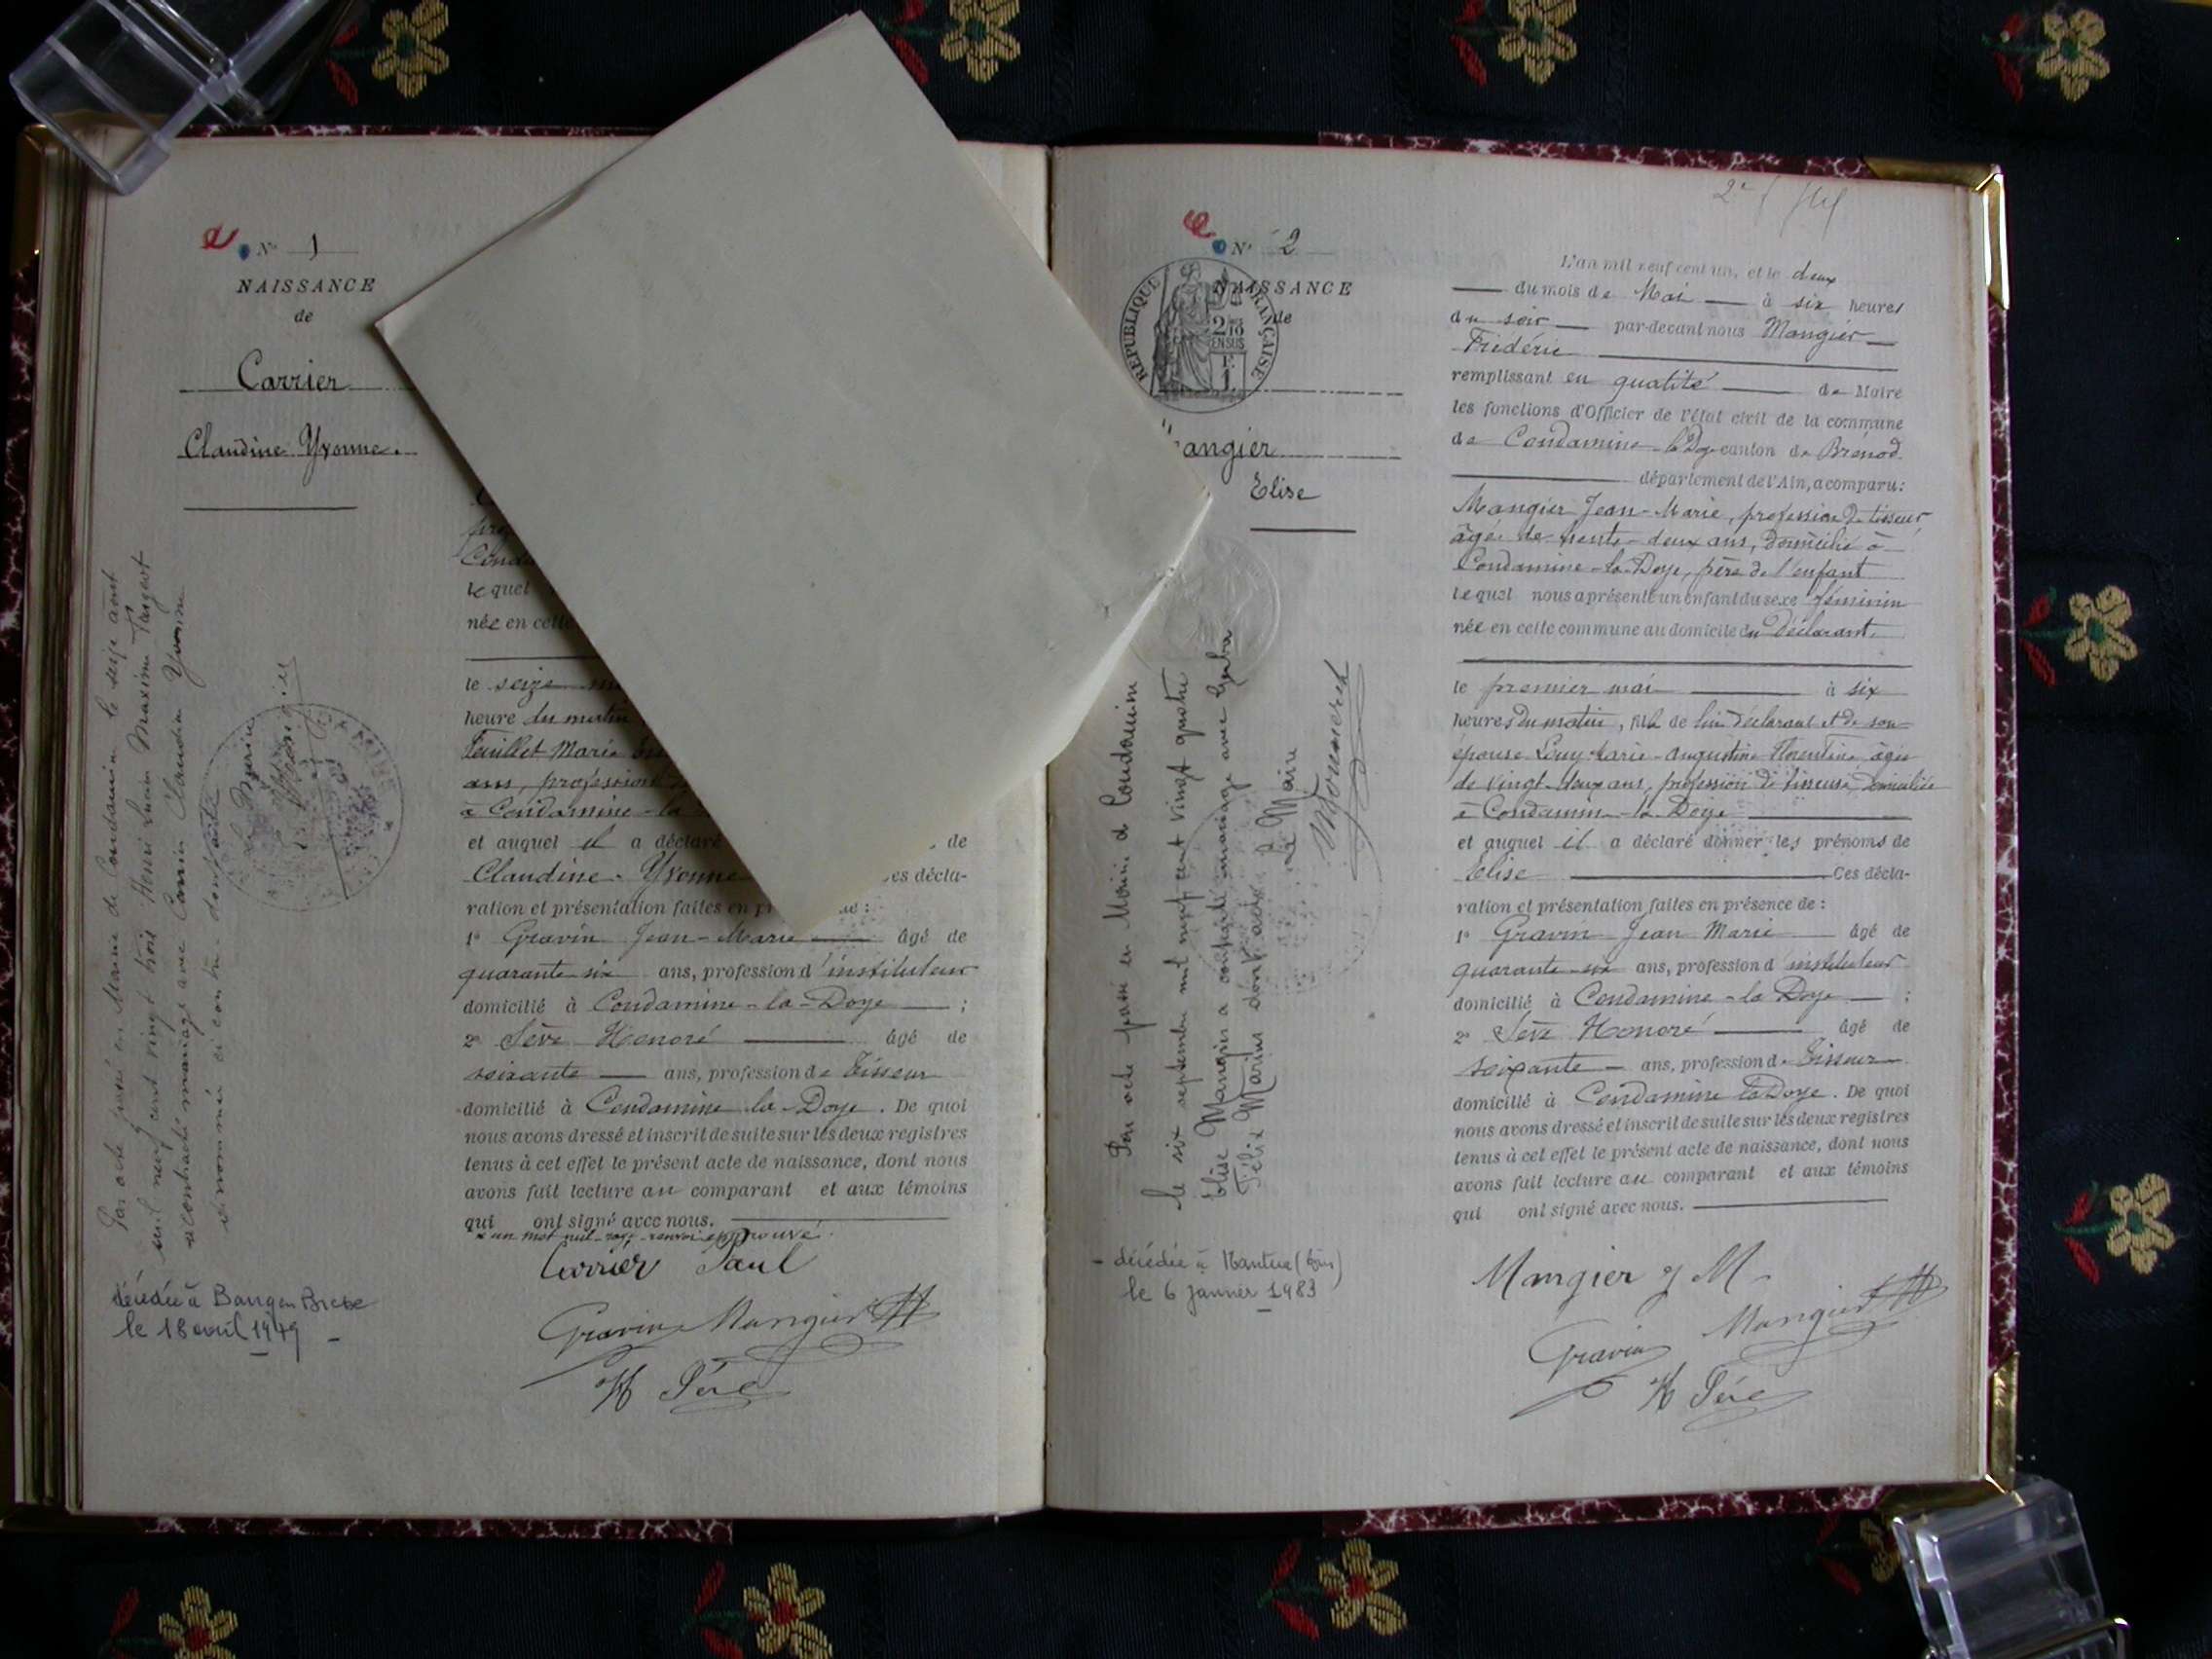 N° 1
NAISSANCE
de
Carrier
Claudine Yvonne.
Par acte passé en Mairie de Condamine le seize août
mil neuf cent vingt trois Henri Lucien Maxime
a contracté mariage avec Carrier Claudine Yvonne
dont acte
décédée à
le 18 avril
lequel
née en cette
le seize
heure du matin
Feuillet Marie
ans, profession
à Condamine-la
et auquel il a déclaré de
Claudine-Yvonne es décla-
ration et présentation faites en
1° Gravin Jean-Marie âgé de
quarante-six ans, profession d'instituteur
domicilié à Condamine-la-Doye ;
2° Sève Honoré âgé de
soixante ans, profession de tisseur
domicilié à Condamine-la-Doye. De quoi
nous avons dressé et inscrit de suite sur les deux registres
tenus à cet effet le présent acte de naissance, dont nous
avons fait lecture au comparant et aux témoins
qui ont signé avec nous.
Carrier Paul
Gravin Mangier
H Sève
N° 2
NAISSANCE
de
REPUBLIQUE FRANÇAISE
angier
Elise
Par acte passé en Mairie de Condamine
le six septembre mil neuf cent vingt quatre
Elise Mangier a contracté mariage avec
Félix Marius dont acte
Le Maire
- décédée à Nantua (Ain)
le 6 janvier 1983
L'an mil neuf cent un, et le deux
du mois de Mai à six heures
du soir par-devant nous Mangier
Frédéric
remplissant en qualité de Maire
les fonctions d'Officier de l'état civil de la commune
de Condamine-la-Doye canton de Brénod
département de l'Ain, a comparu:
Mangier Jean-Marie, profession de tisseur
âgé de trente-deux ans, domicilié à
Condamine-la-Doye, père de l'enfant
lequel nous a présenté un enfant du sexe féminin
née en cette commune au domicile du déclarant.
le premier mai à six
heures du matin, fille de lui déclarant et de son
épouse Marie-Augustine Florentine, âgée
de vingt-deux ans, profession de tisseuse, domiciliée
à Condamine-la-Doye
et auquel il a déclaré donner les prénoms de
Elise Ces décla-
ration et présentation faites en présence de :
1° Gravin Jean Marie âgé de
quarante-six ans, profession d'instituteur
domicilié à Condamine-la Doye ;
2° Sève Honoré âgé de
soixante ans, profession de tisseur
domicilié à Condamine la Doye. De quoi
nous avons dressé et inscrit de suite sur les deux registres
tenus à cet effet le présent acte de naissance, dont nous
avons fait lecture au comparant et aux témoins
qui ont signé avec nous.
Mangier J M
Mangier
Gravin
H Sève